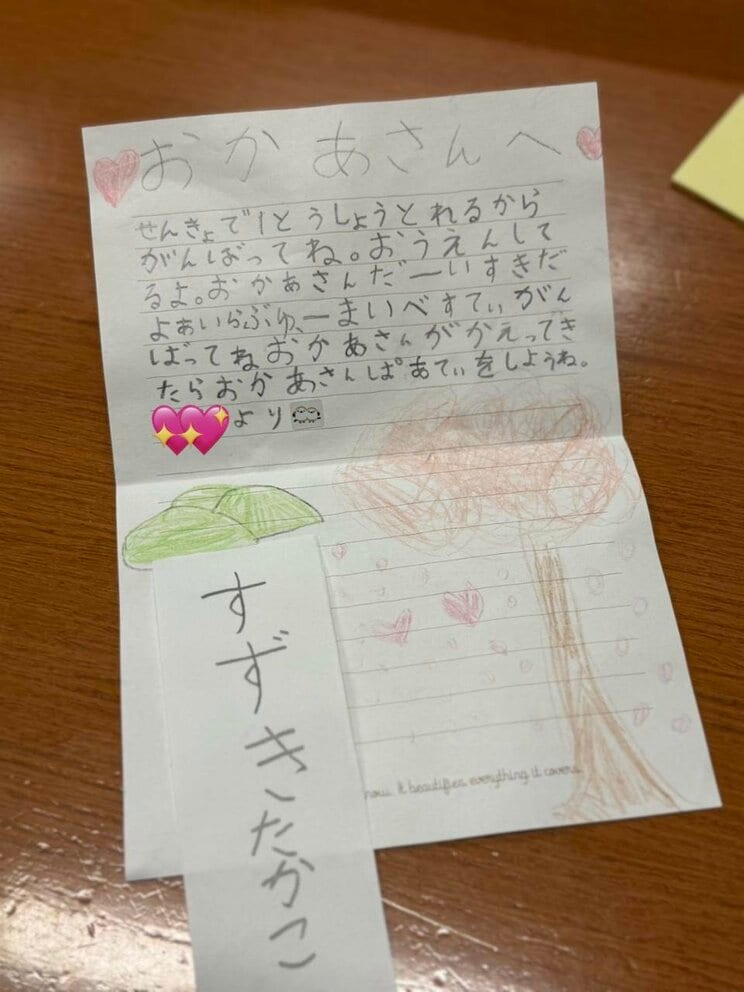 おかあさんへ
せんきょで1とうしょうとれるから
がんばってね。おうえんして
るよ。おかあさんだーいすきだ
よぁいらぶゅーまいべすてぃがん
ばってねおかあさんがかえってき
たらおかあさんぱあてぃをしようね。
より
すずきたかこ
now. It beautifies everything it covers.